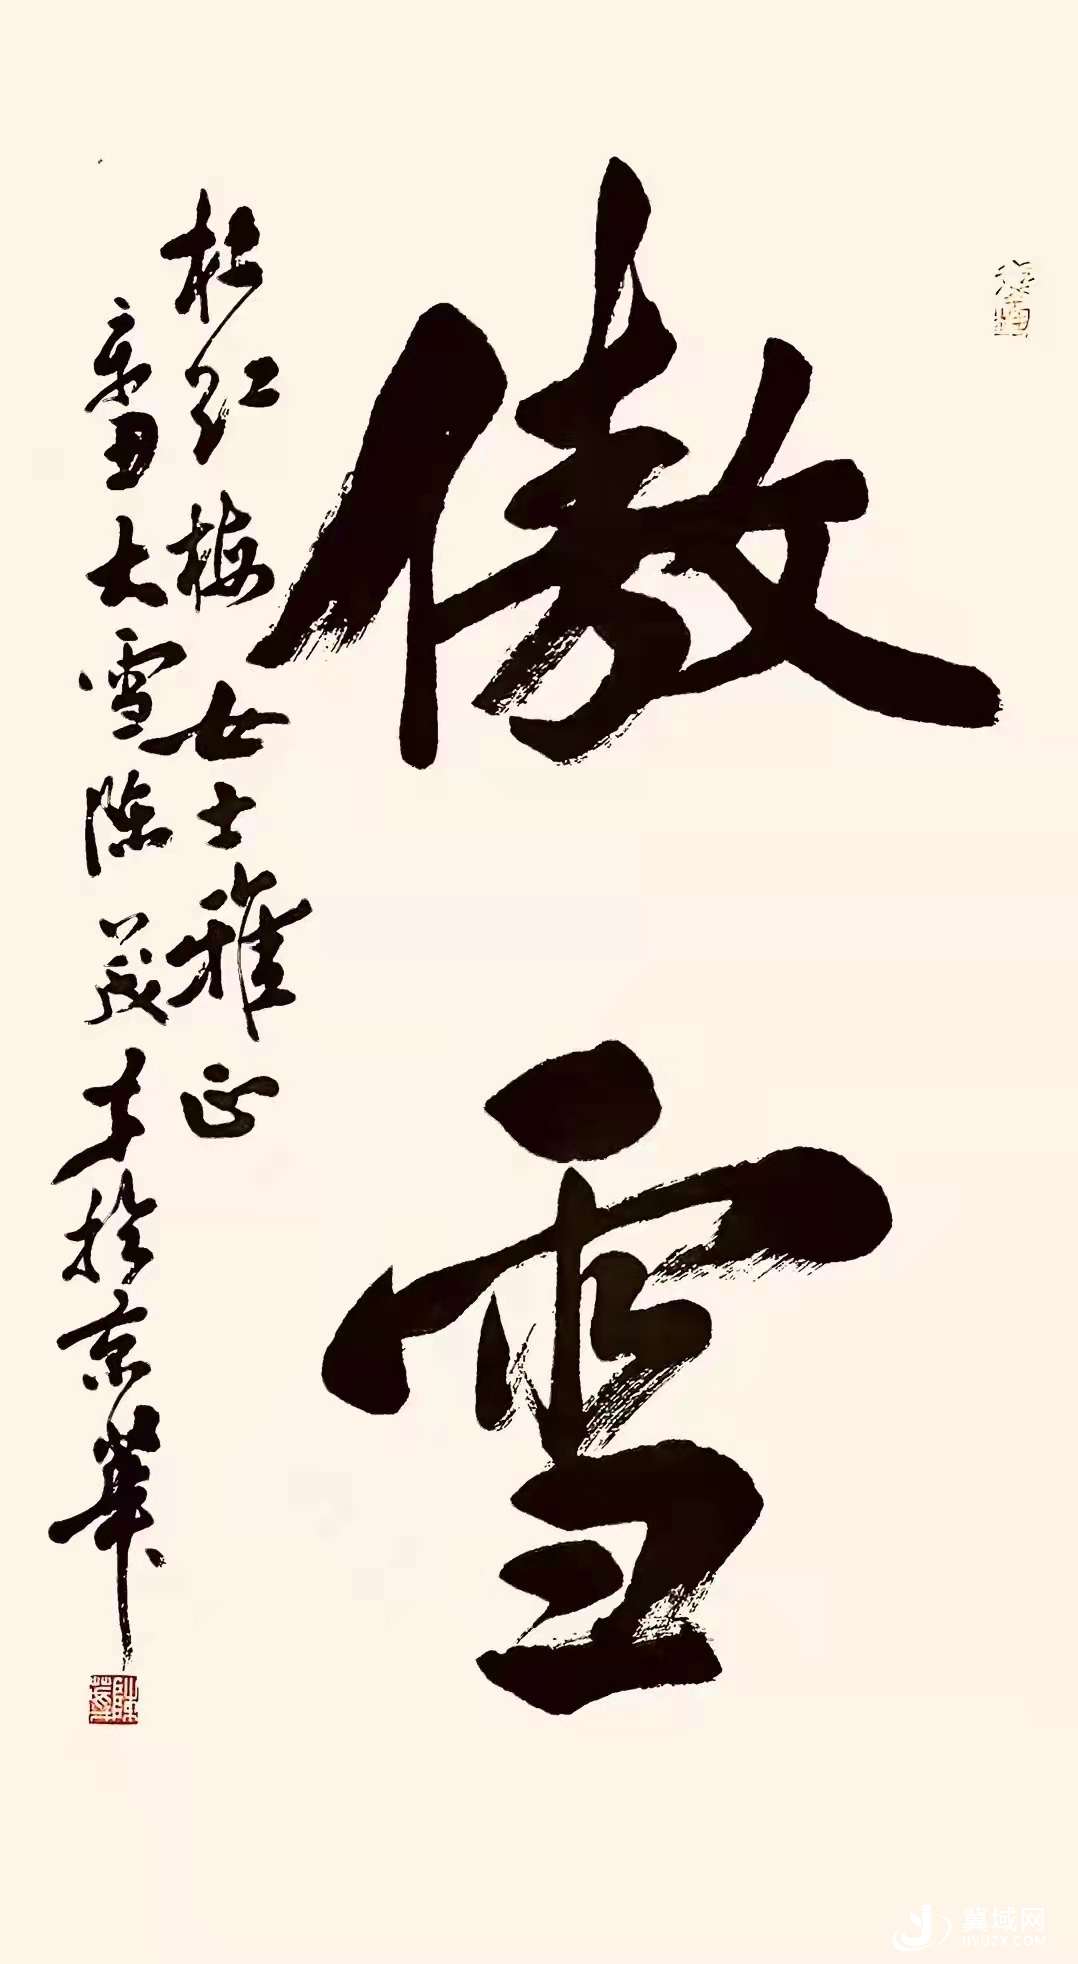 傲雪
杜红梅女士雅正
辛丑大雪陈茂才於京華
冀域网
JIYUZX.COM